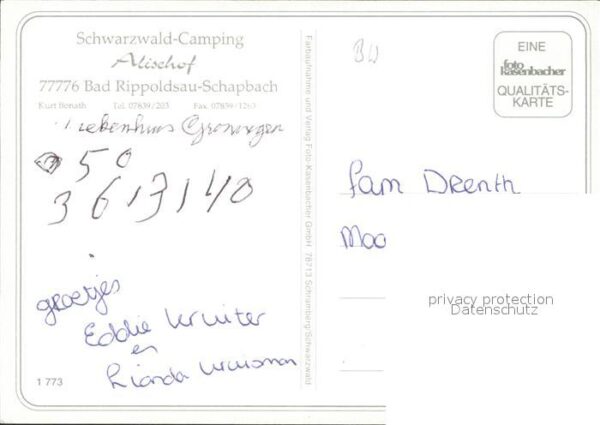 Schwarzwald-Camping
Alisehof
77776 Bad Rippoldsau-Schapbach
Kurt Benath Tel. 07839/203 Fax. 07839/1263
Groningen
50
3613140
groetjes
Eddie Kruiter
en
Rianda
1 773
Farbaufnahme und Verlag Foto-Kasenbacher GmbH, 78713 Schramberg/Schwarzwald
BW
EINE
foto
kasenbacher
QUALITÄTS-
KARTE
fam Drenth
Moo
privacy protection
Datenschutz